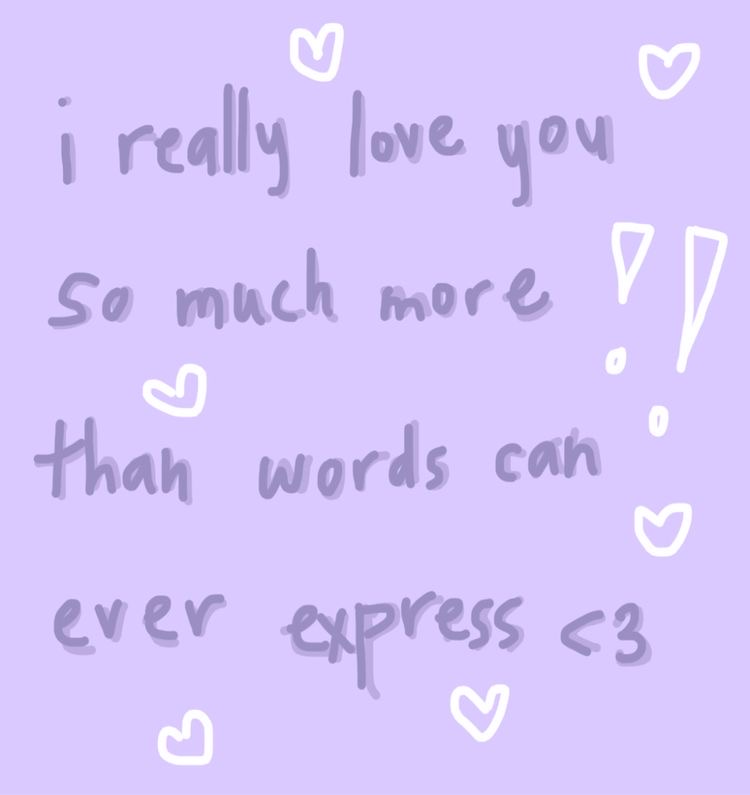 i really love you
so much more !!
than words can
ever express <3